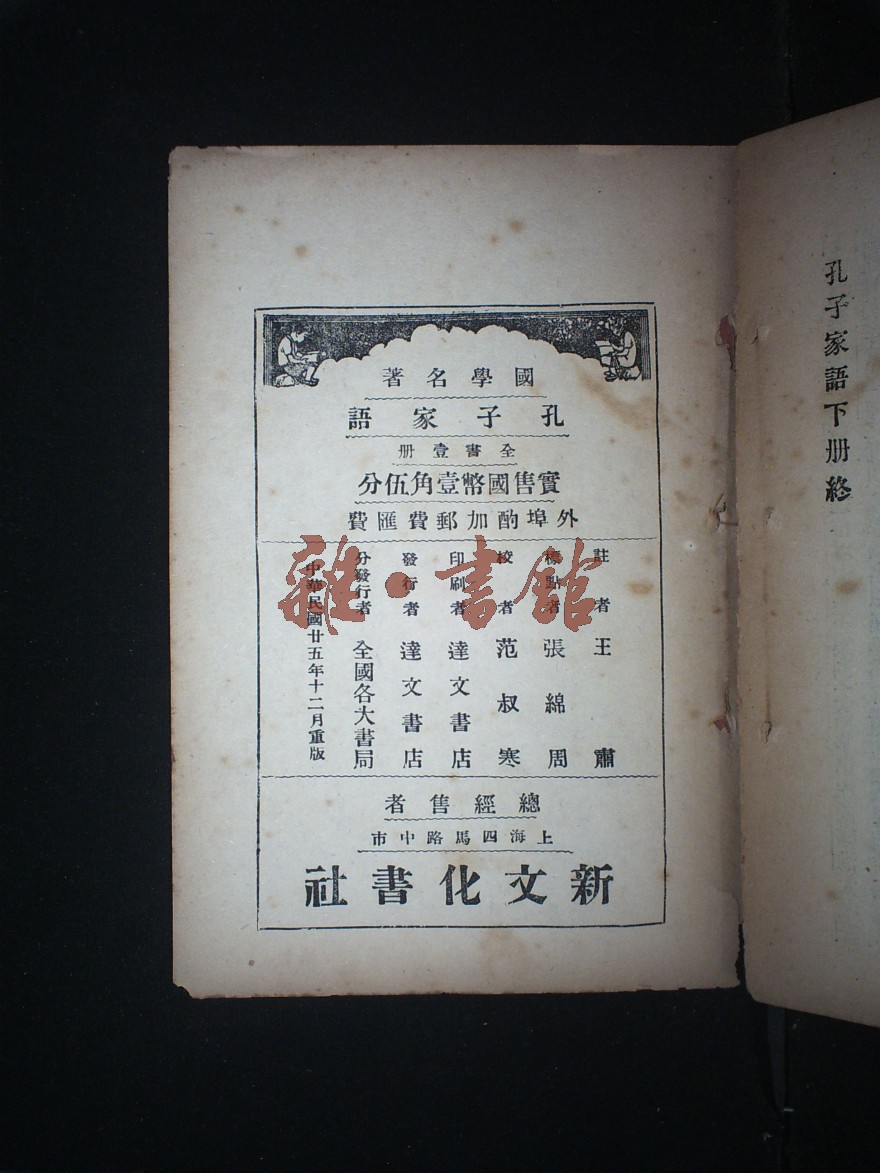 孔子家語下册終
國學名著
孔子家語
全書壹册
實售國幣壹角伍分
外埠酌加郵費匯費
註者王肅
標點者張綿周
校者范叔寒
印刷者達文書店
發行者達文書店
分發行者全國各大書局
中華民國廿五年十二月重版
總經售者
上海四馬路中市
新文化書社
雜·書館